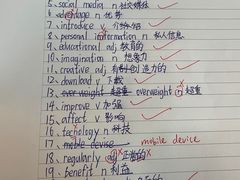 5、social media n 社交媒体
6、advantage n 优势
7、introduce v 介绍
8、personal information n 私人信息
9、educational adj 教育的
10、imagination n 想象力
11、creative adj 有创造力的
12、download v 下载
13、over weight 超重 overweight 超重
14、improve v 加强
15、affect v 影响
16、technology n 科技
17、moble device mobile device
18、regularly 正常的
19、benefit n 利益